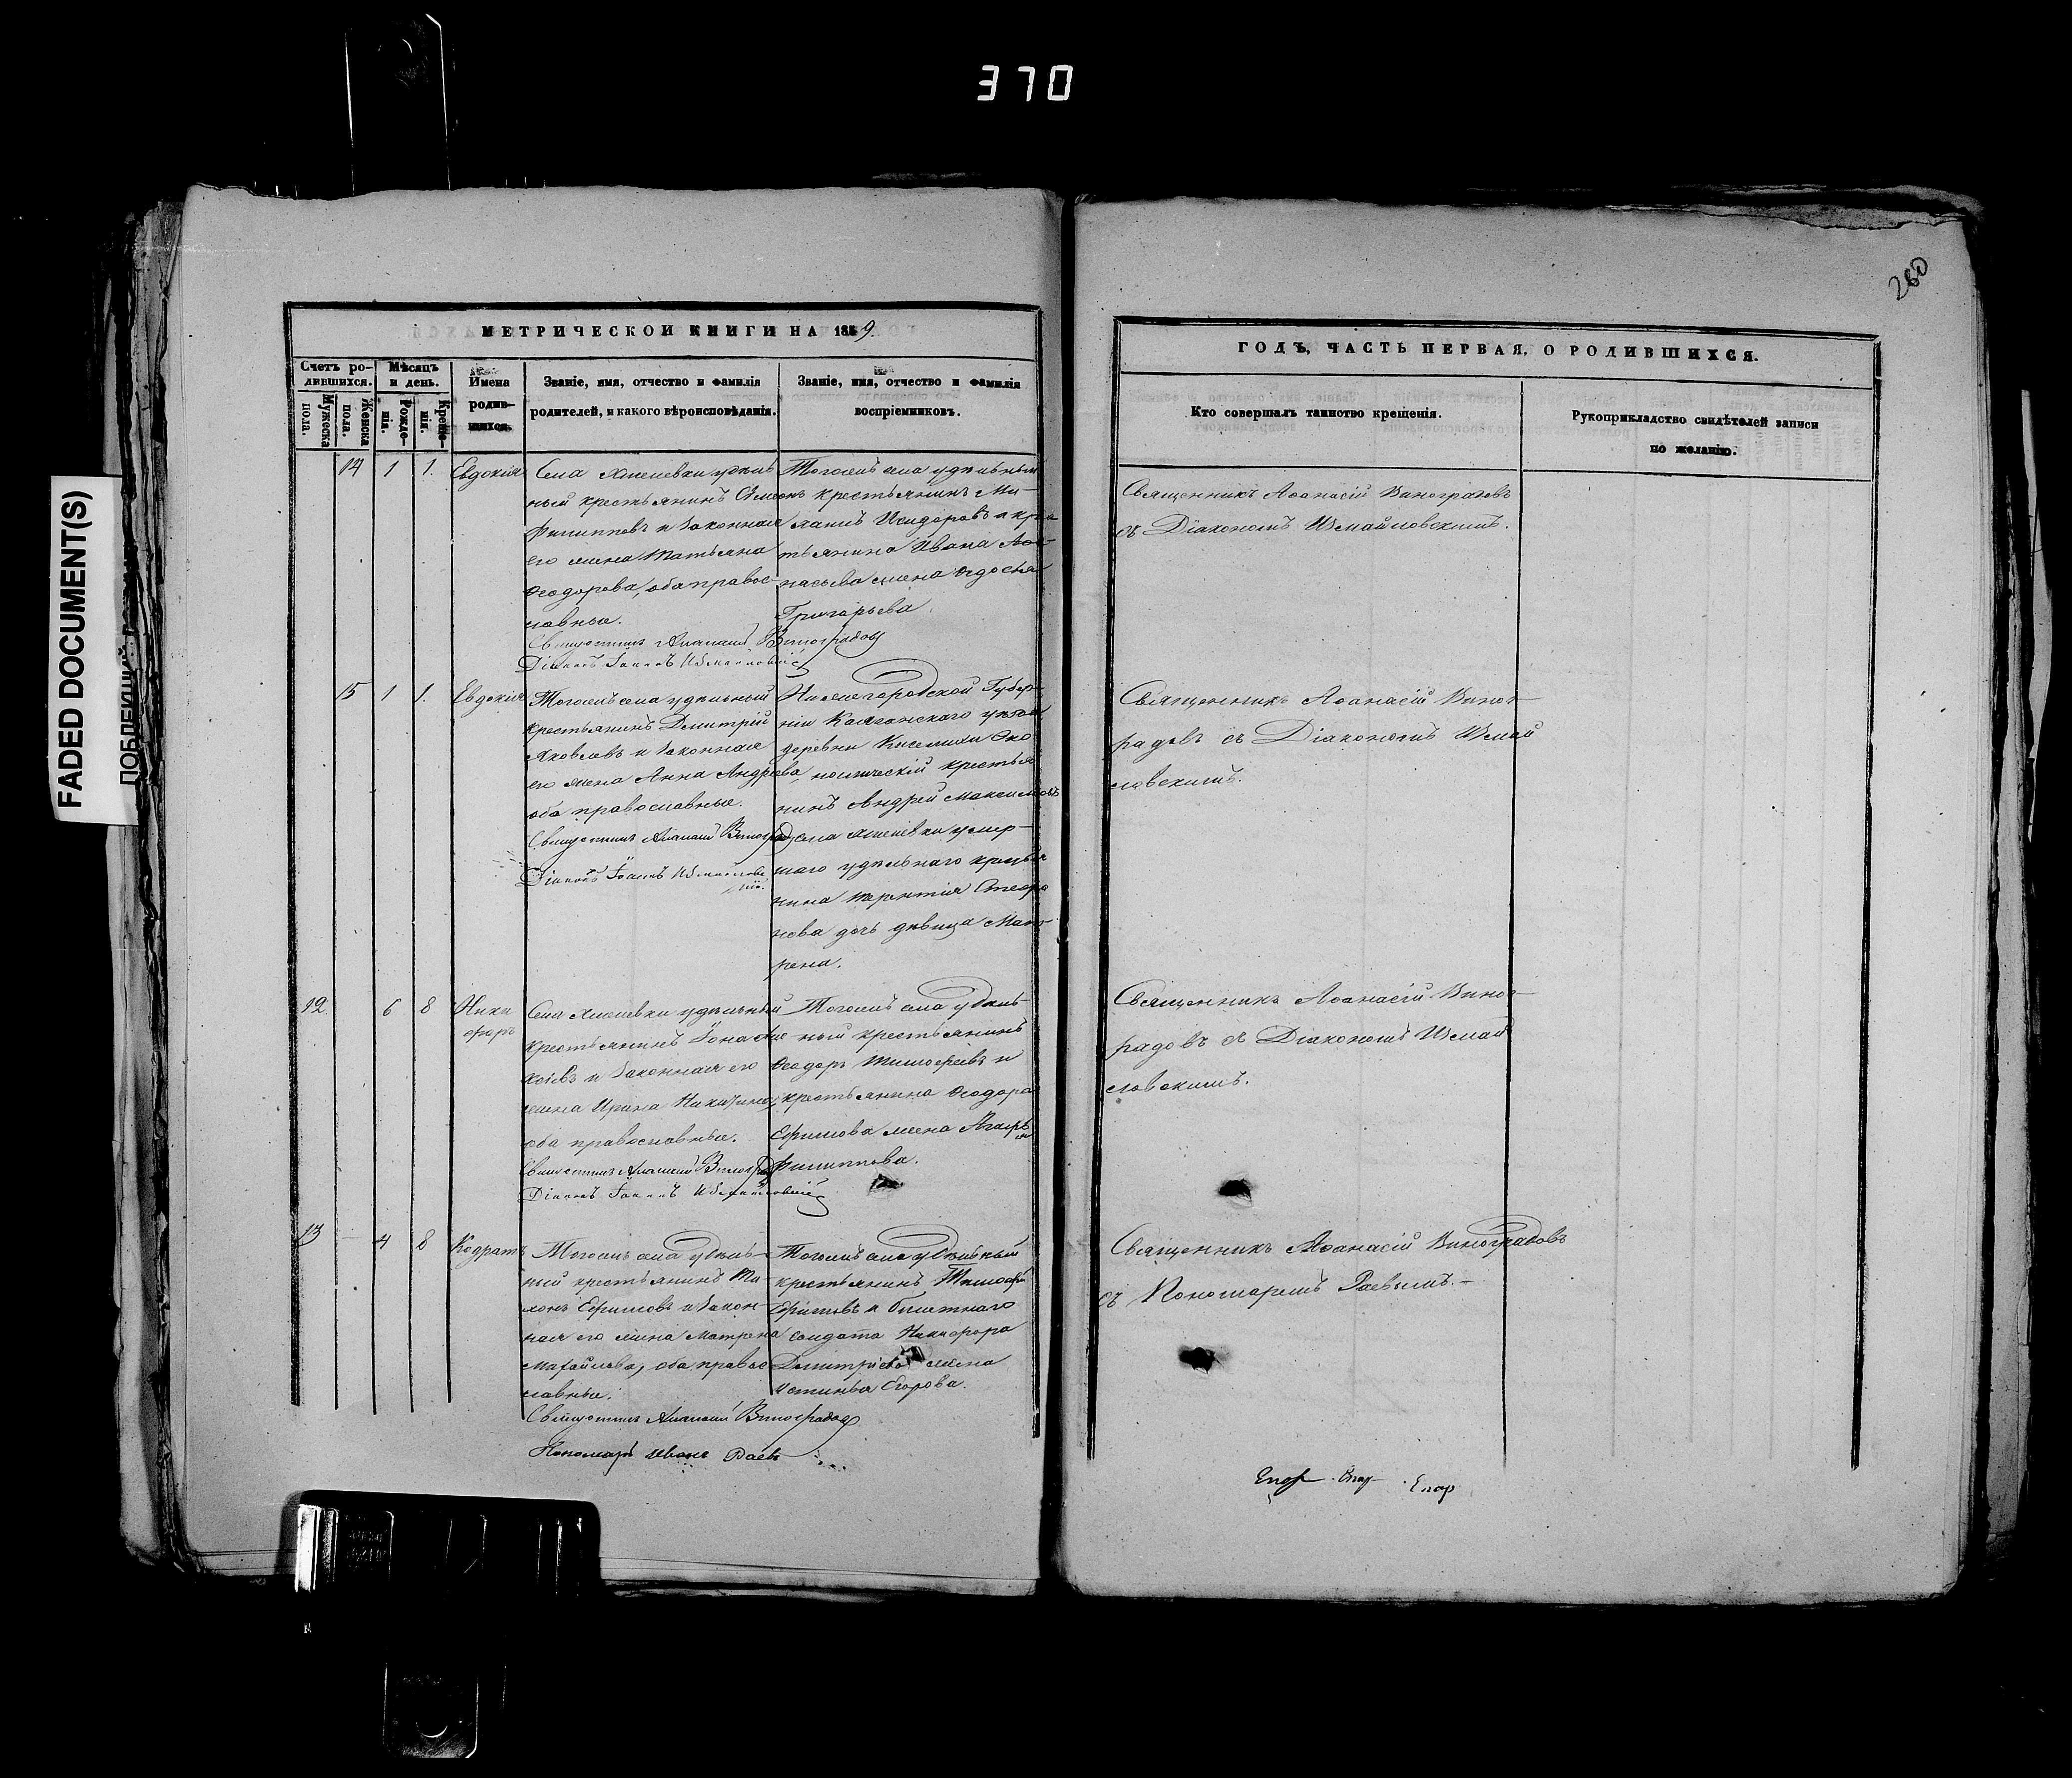 370
FADED DOCUMENT(S)
260
МЕТРИЧЕСКОЙ КНИГИ НА 1859.
Счетъ ро-
дившихся.
Мужеска
пола.
Женска
пола.
Мѣсяцъ
и день.
Рожде-
нія.
Креще-
нія.
Имена
родив-
шихся.
Званіе, имя, отчество и фамилія
родителей, и какого вѣроисповѣданія.
Званіе, имя, отчество и фамилія
воспріемниковъ.
14 1 1. Евдокія
Села Хмелевки удѣль
ный крестьянинъ Симеонъ
Филипповъ и законная
его жена Татьяна
Ѳеодорова, оба правос-
лавные.
Священникъ Аѳанасій Виноградовъ
Діаконъ Іоаннъ Измайловскій
Тогожъ села удѣльный
крестьянинъ Ми-
хаилъ Исидоровъ и крес
тьянина Ивана Аѳа-
насьева жена Ѳедосья
Григорьева.
15 1 1. Евдокія
Тогожъ села удѣльный
крестьянинъ Дмитрій
Яковлевъ и законная
его жена Анна Андреева,
оба православные.
Священникъ Аѳанасій Виноградовъ
Діаконъ Іоаннъ Измайловс
кій.
Нижегородской Губер-
ніи Княгинскаго уѣзда
деревни Эко
номическій крестья
нинъ Андрей Максимовъ
села Хмелевки умер-
шаго удѣльнаго крестья
нина Терентія Стефа
нова дочь дѣвица Мат-
рена.
12 6 8 Ники
форъ
Села Хмелевки удѣльный
крестьянинъ Іона
и законная его
жена Ирина Никитина,
оба православные.
Священникъ Аѳанасій Виноградовъ
Діаконъ Іоаннъ Измайловскій
Тогожъ села удѣль-
ный крестьянинъ
Ѳеодоръ Тимоѳеевъ и
крестьянина Ѳеодора
Ефимова жена Агафья
Филиппова.
13 4 8 Кодратъ
Тогожъ села удѣль-
ный крестьянинъ
Ефимовъ и закон-
ная его жена Матрена
Михайлова, оба правос
лавные.
Священникъ Аѳанасій Виноградовъ
Пономарь Иванъ Раевъ
Тогожъ села удѣльный
крестьянинъ Тимоѳей
Ефимовъ и билетнаго
солдата Никифора
Дмитріева жена
Устинья Егорова.
ГОДЪ, ЧАСТЬ ПЕРВАЯ, О РОДИВШИХСЯ.
Кто совершалъ таинство крещенія.
Рукоприкладство свидѣтелей записи
по желанію.
Священникъ Аѳанасій Виноградовъ
съ Діакономъ Измайловскимъ.
Священникъ Аѳанасій Виног-
радовъ съ Діакономъ Измай
ловскимъ.
Священникъ Аѳанасій Виног-
радовъ съ Діакономъ Измай
ловскимъ.
Священникъ Аѳанасій Виноградовъ
съ Пономаремъ Раевымъ.-